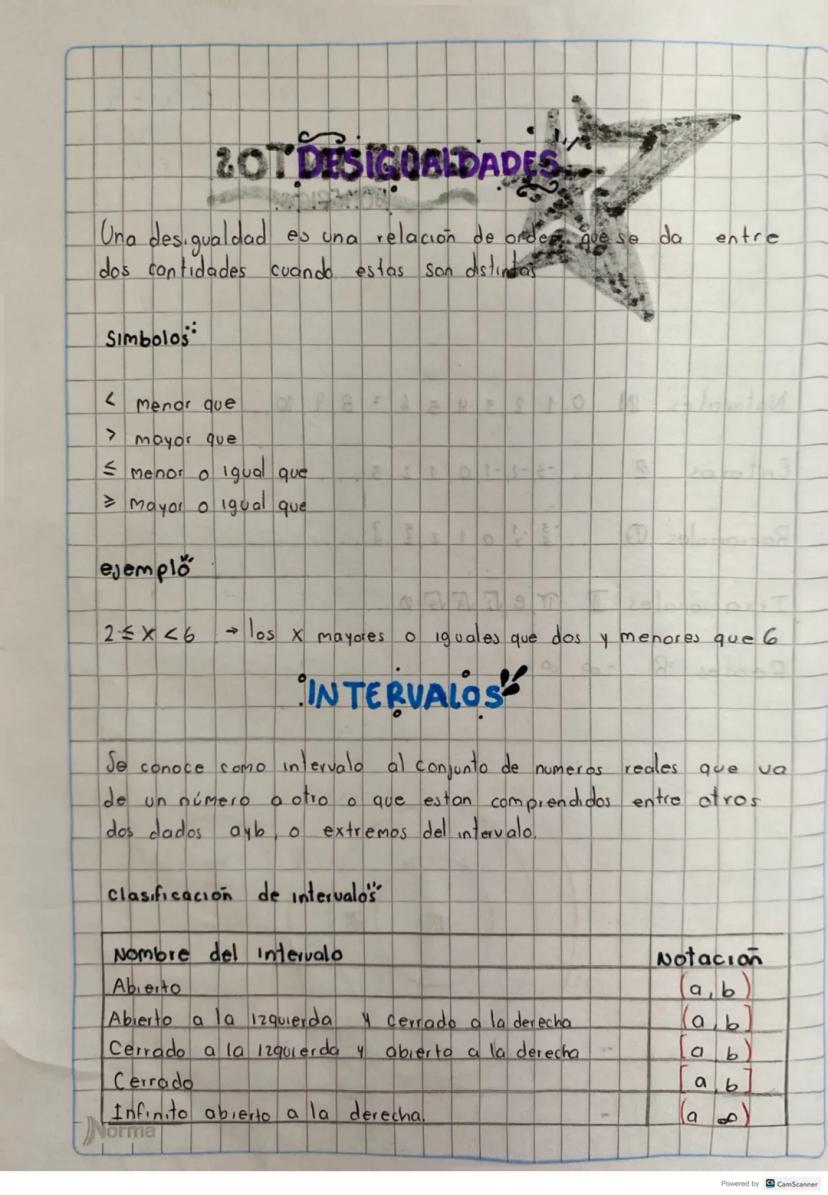 DESIGUALDADES
Una desigualdad es una relación de orden que se da entre
dos cantidades cuando estas son distintas
Simbolos
< menor que
> mayor que
≤ menor o igual que
≥ mayor o igual que
ejemplo
2 ≤ x < 6 → los x mayores o iguales que dos y menores que 6
INTERVALOS
Se conoce como intervalo al conjunto de numeros reales que va
de un número a otro o que estan comprendidos entre otros
dos dados a y b, o extremos del intervalo.
Clasificación de intervalos
Nombre del intervalo Notación
Abierto (a, b)
Abierto a la izquierda y cerrado a la derecha (a, b]
Cerrado a la izquierda y abierto a la derecha [a, b)
Cerrado [a, b]
Infinito abierto a la derecha. (a ∞)
Norma
Powered by CS CamScanner